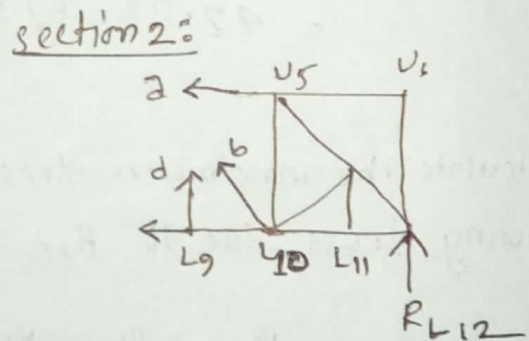 section 2:
a U5 U6
d b
L9 L10 L11
RL12